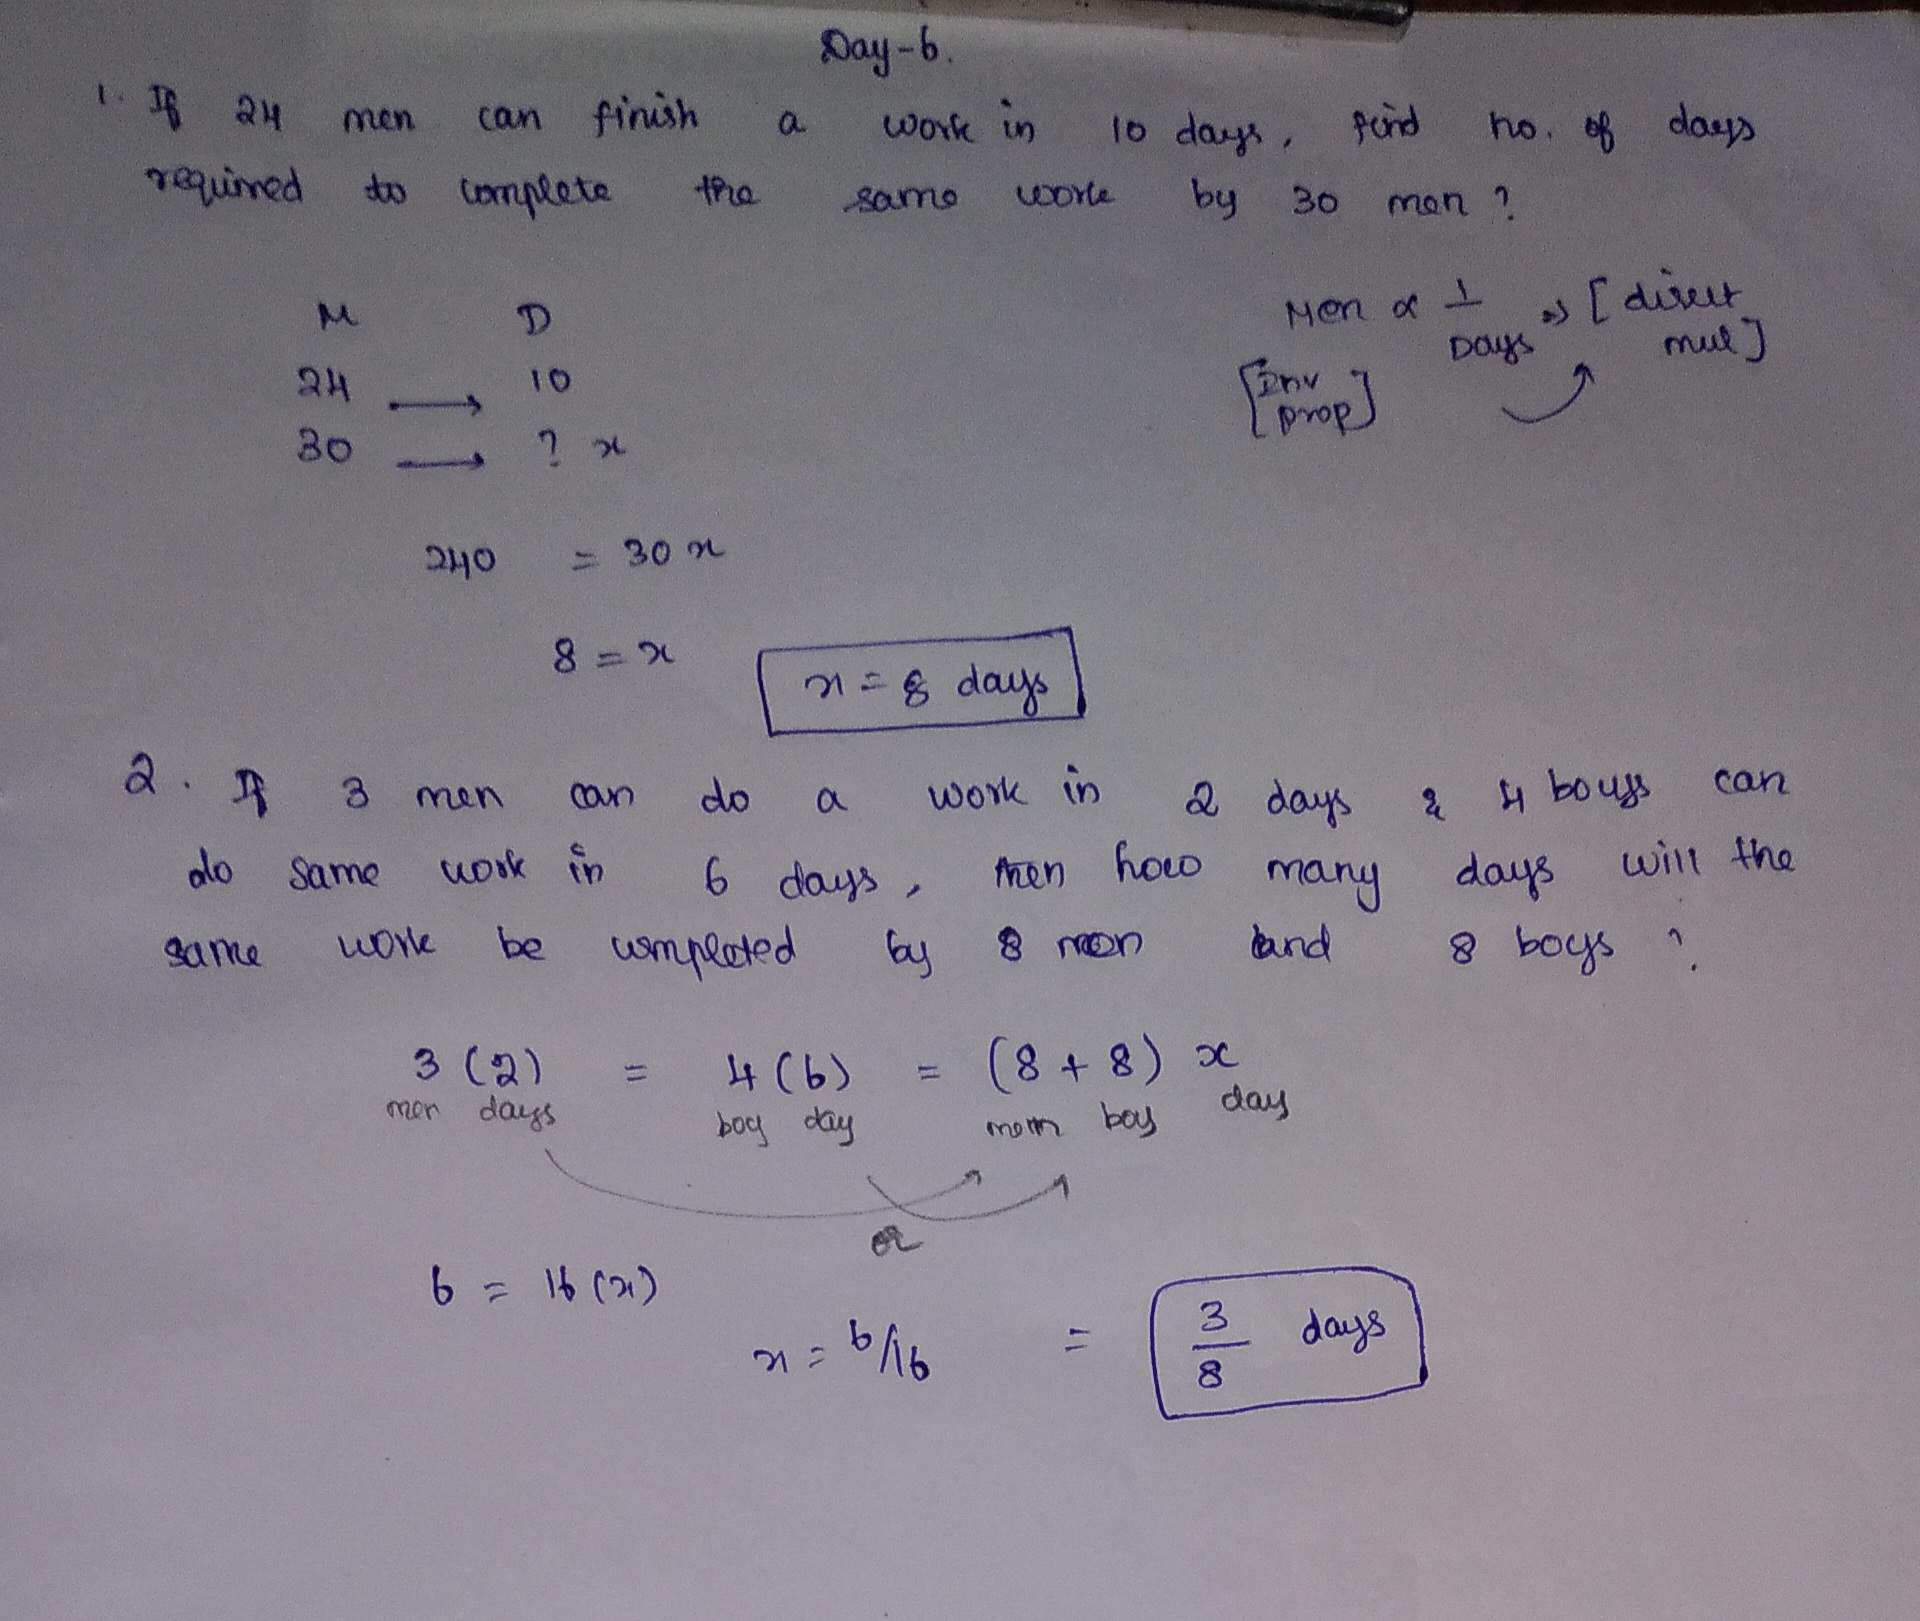 Day-6.
1. If 24 men can finish a work in 10 days, find no. of days
required to complete the same work by 30 men ?
M D
24 → 10
30 → ? x
Men ∝ 1/Days ⇒ [direct mul]
[Inv prop]
240 = 30x
8 = x
x = 8 days
2. If 3 men can do a work in 2 days & 4 boys can
do same work in 6 days, then how many days will the
same work be completed by 8 men and 8 boys ?
3 (2) = 4 (6) = (8 + 8) x
men days boy day men boy day
or
6 = 16 (x)
x = 6/16 = 3/8 days